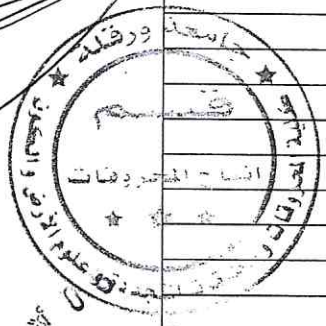 جامعة ورقلة
كلية المحروقات و
المتجددة وعلوم الأرض والكون
قسم
انتاج المحروقات